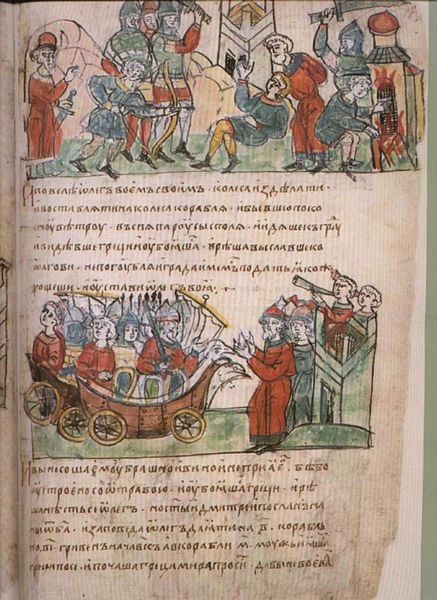 И повелѣ ѡлегъ воемъ своимъ · колеса издѣлати ·
и воставляти на колеса корабля · и бывшю поко
ноу вѣтроу · въспя пароусы с поля · и идяше къ граⷣ
и видѣвше греци и оубояша · и рѣша выславше ко
ѡлгови · не погоубляи града имем по дать яко ж
хощеши · и оустави ѡлегъ воя ·
И вынесоша емоу брашно и вино и не прия е · бѣ бо
оустроено со ѿравою · и оубояша греци · и рѣ
ша нѣсть се ѡлегъ · но ст҃ыи дмитреи посланъ на
ны ѿ б҃а · и заповеда ѡлегъ дань в҃ · корабль
по в҃і · гривенъ на чл҃вкъ а в корабли м҃ · моужь и яша
греци по се · и почаша греци мира просити · дабы не воевал